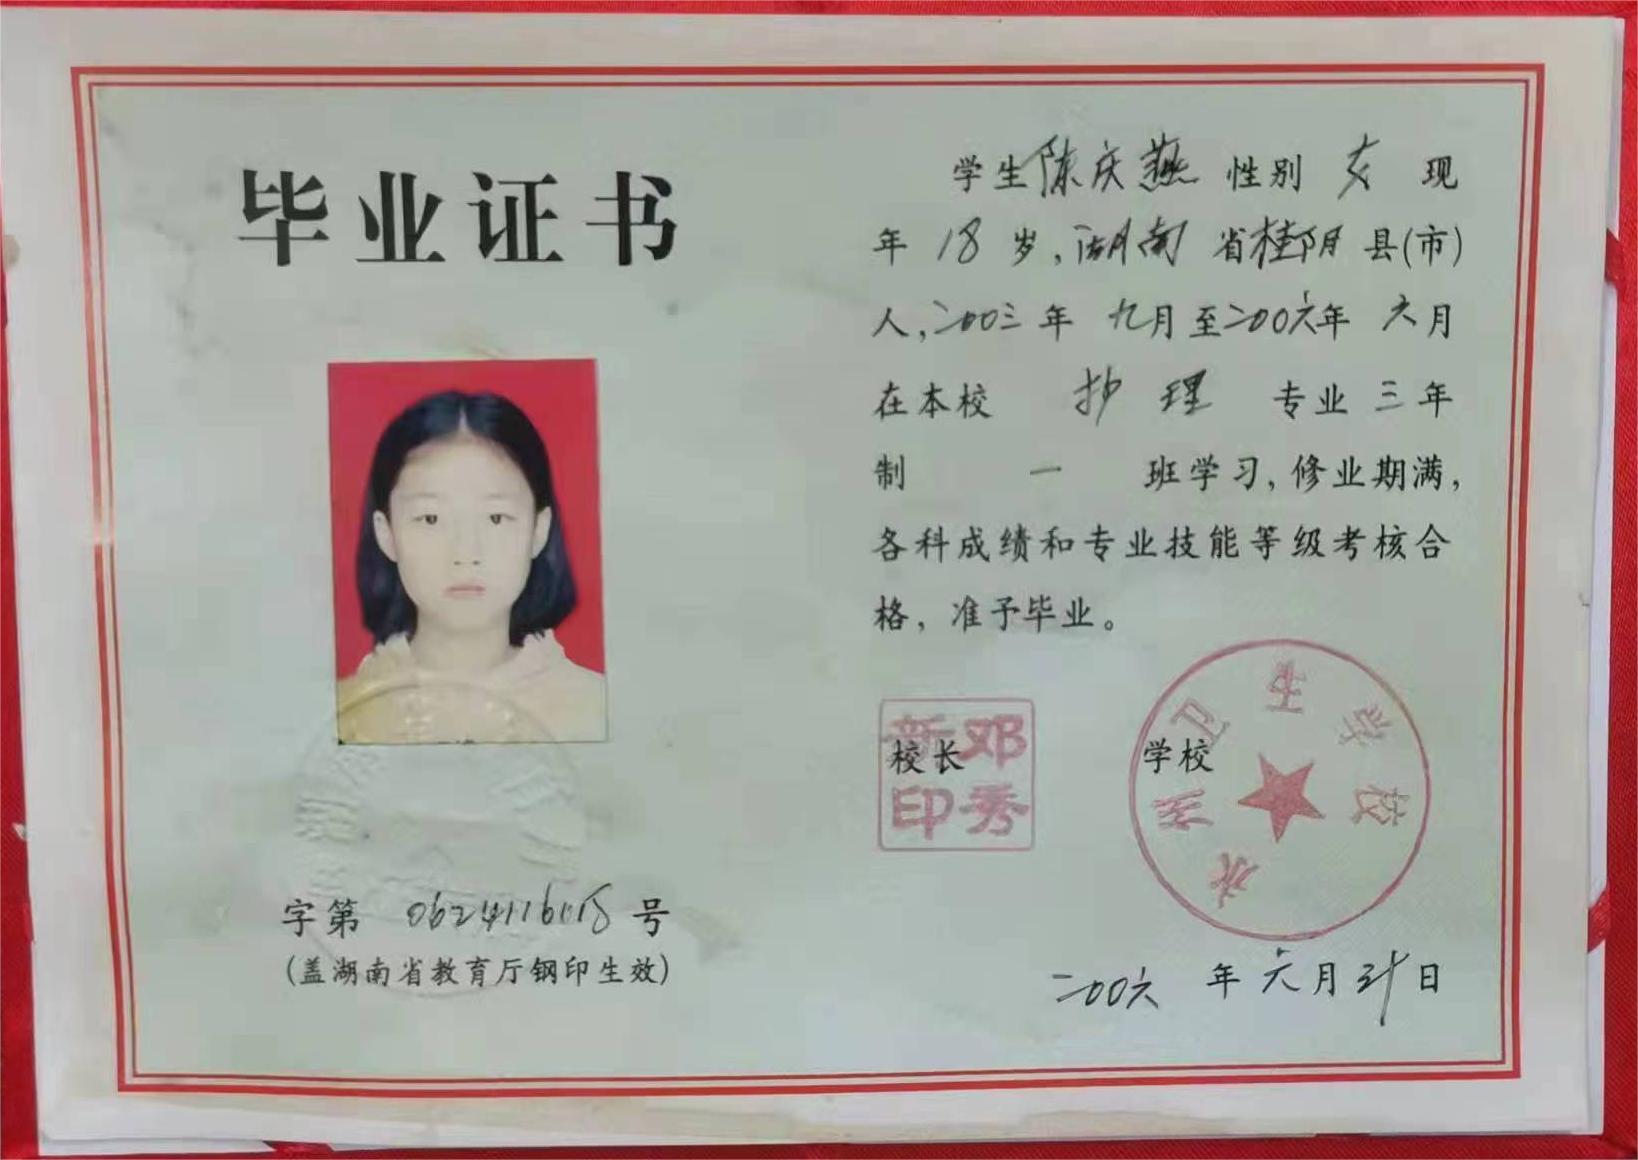 毕业证书
字第 0624116018 号
(盖湖南省教育厅钢印生效)
学生陈庆燕 性别 女 现
年 18 岁,湖南 省桂阳 县(市)
人,二00三 年 九月至二00六年 六月
在本校 护理 专业 三 年
制 一 班学习,修业期满,
各科成绩和专业技能等级考核合
格,准予毕业。
校长
邓秀新印
学校
永州卫生学校
二00六 年 六月 三十 日